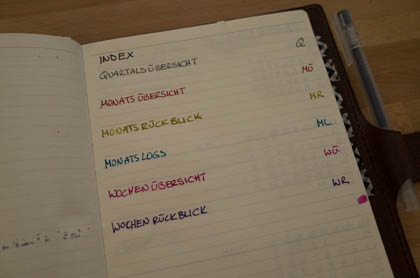 INDEX
QUARTALSÜBERSICHT Q
MONATSÜBERSICHT MÜ
MONATSRÜCKBLICK MR
MONATSLOGS ML
WOCHENÜBERSICHT WÜ
WOCHENRÜCKBLICK WR